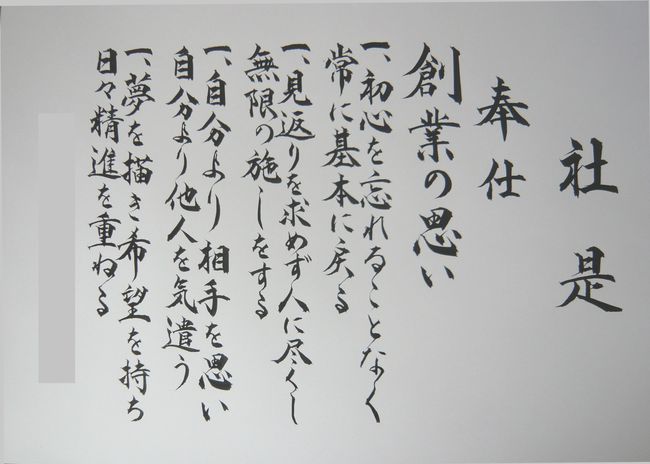 社是
奉仕
創業の思い
一、初心を忘れることなく
常に基本に戻る
一、見返りを求めず人に尽くし
無限の施しをする
一、自分より相手を思い
自分より他人を気遣う
一、夢を描き希望を持ち
日々精進を重ねる